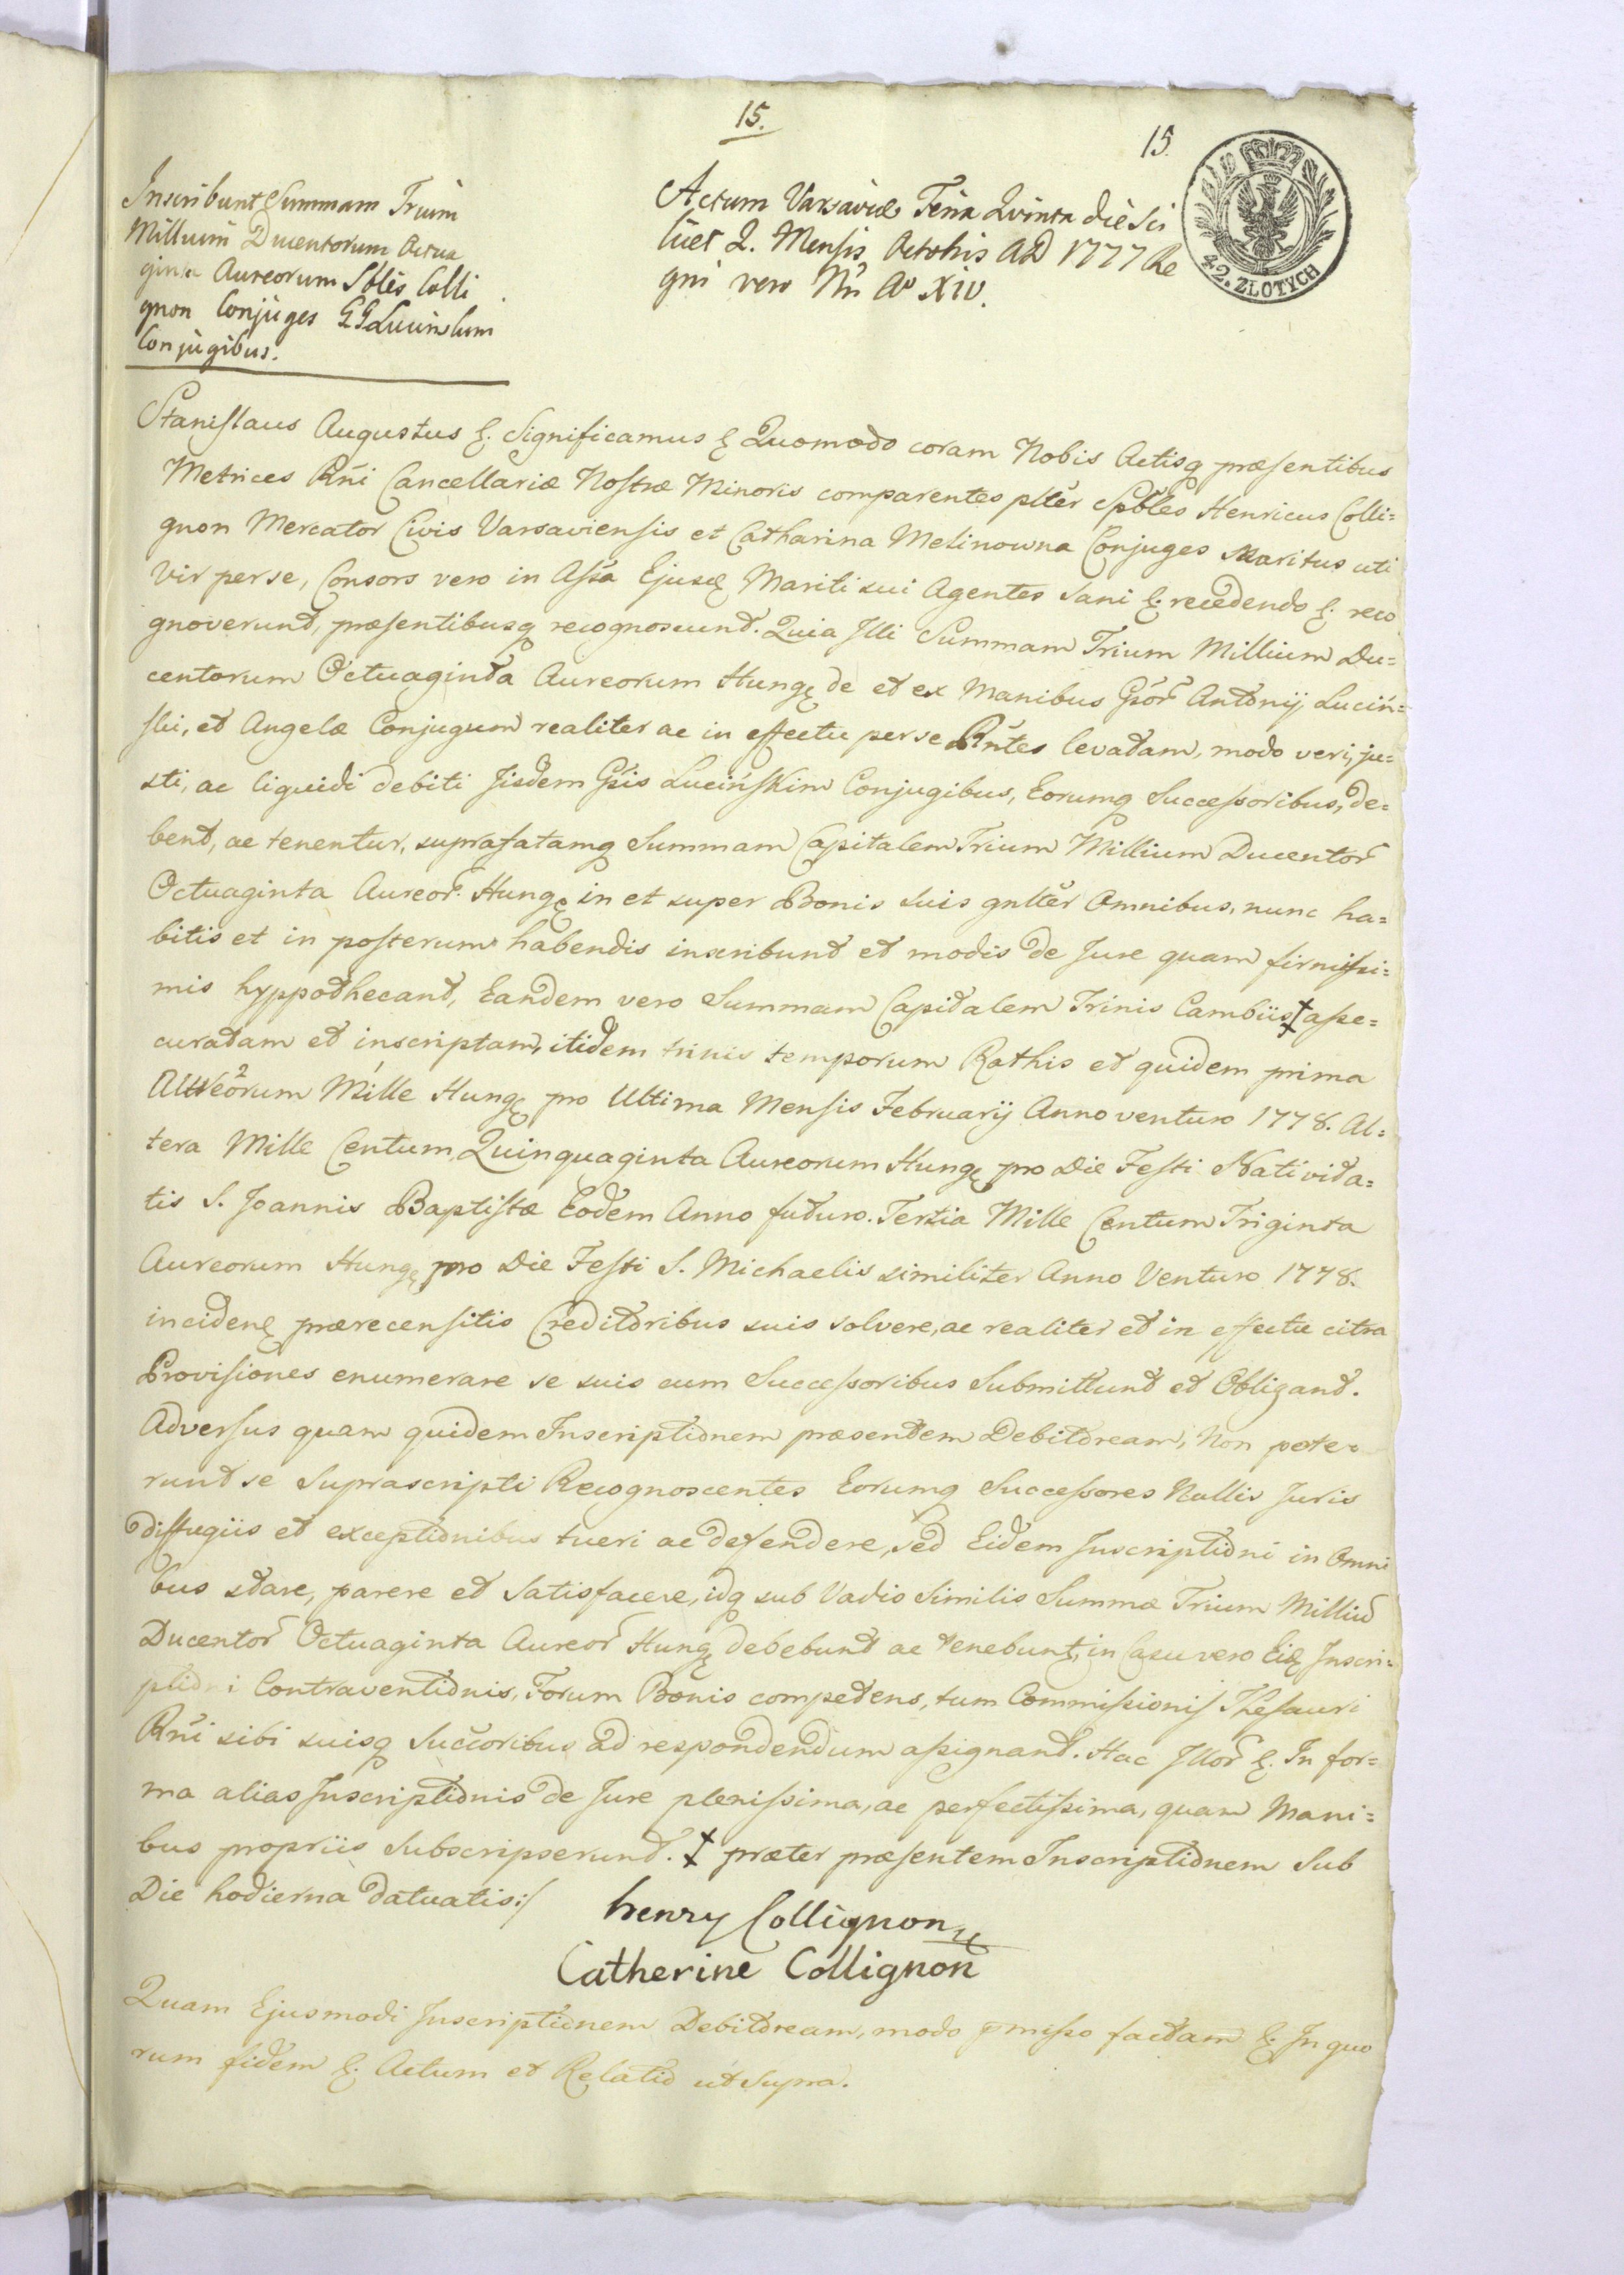 15.
15.
42. ZLOTYCH
Inscribunt Summam Trium
Millium Ducentorum Octua
ginta Aureorum Sbles Colli
gnon Conjuges GG Lucinskim
Conjugibus.
Actum Varsaviæ Feria Quinta die sci
licet 2. Mensis Octobris AD 1777 Re
gni vero Nri Ao XIV.
Stanislaus Augustus &. Significamus & Quomodo coram Nobis Actisq præsentibus
Metrices Rñi Cancellariæ Nostræ Minoris comparentes plter Spbles Henricus Colli=
gnon Mercator Civis Varsaviensis et Catharina Metinowna Conjuges Maritus uti
Vir per se, Consors vero in Assa Ejusd Mariti sui Agentes sani &. recedendo &. reco
gnoverunt, præsentibusq recognoscunt. Quia Illi Summam Trium Millium Du=
centorum Octuaginta Aureorum Hung de et ex Manibus Gsor Antonij Luciń=
ski, et Angelæ Conjugum realiter ac in effectu per se Rntes levatam, modo veri, ju=
sti, ac liquidi debiti Iisdem Gsis Lucińskim Conjugibus, Eorumq Successoribus, de=
bent, ac tenentur, suprafatamq Summam Capitalem Trium Millium Ducentor
Octuaginta Aureor. Hung in et super Bonis suis gnlter Omnibus, nunc ha=
bitis et in posterum habendis inscribunt et modis de Jure quam firmissi=
mis hyppothecant, Eandem vero Summam Capitalem Trinis Cambiis ‡ asse=
curatam et inscriptam, itidem trinis temporum Rathis et quidem prima
Aureorum 2 Mille 1 Hung pro Ultima Mensis Februarij Anno venturo 1778. Al=
tera Mille Centum Quinquaginta Aureorum Hung pro Die Festi Nativita=
tis S. Joannis Baptistæ Eodem Anno futuro. Tertia Mille Centum Triginta
Aureorum Hung pro Die Festi S. Michaelis similiter Anno Venturo 1778.
inciden prærecensitis Creditoribus suis solvere, ac realiter et in effectu citra
Provisiones enumerare se suis cum Successoribus Submittunt et Obligant.
Adversus quam quidem Inscriptionem præsentem Debitoream, Non pote=
runt se Suprascripti Recognoscentes Eorumq Successores Nullis Juris
diffugiis et exceptionibus tueri ac defendere, sed Eidem Inscriptioni in Omni
bus stare, parere et Satisfacere, idq sub Vadio Similis Summæ Trium Milliũ
Ducentor Octuaginta Aureor Hung debebunt ac tenebunt, in Casu vero Eid Inscri=
ptioni Contraventionis, Forum Bonis competens, tum Commissionis Thesauri
Rñi sibi suisq Succoribus ad respondendum assignant. Hac Illor &. In for=
ma alias Inscriptionis de Jure plenissima, ac perfectissima, quam Mani=
bus propriis Subscripserunt. ‡ præter præsentem Inscriptionem Sub
Die hodierna datuatis:/
henry Collignon
Catherine Collignon
Quam Ejusmodi Inscriptionem Debitoream, modo pmisso factam &. In quo
rum fidem &. Actum et Relatio ut supra.